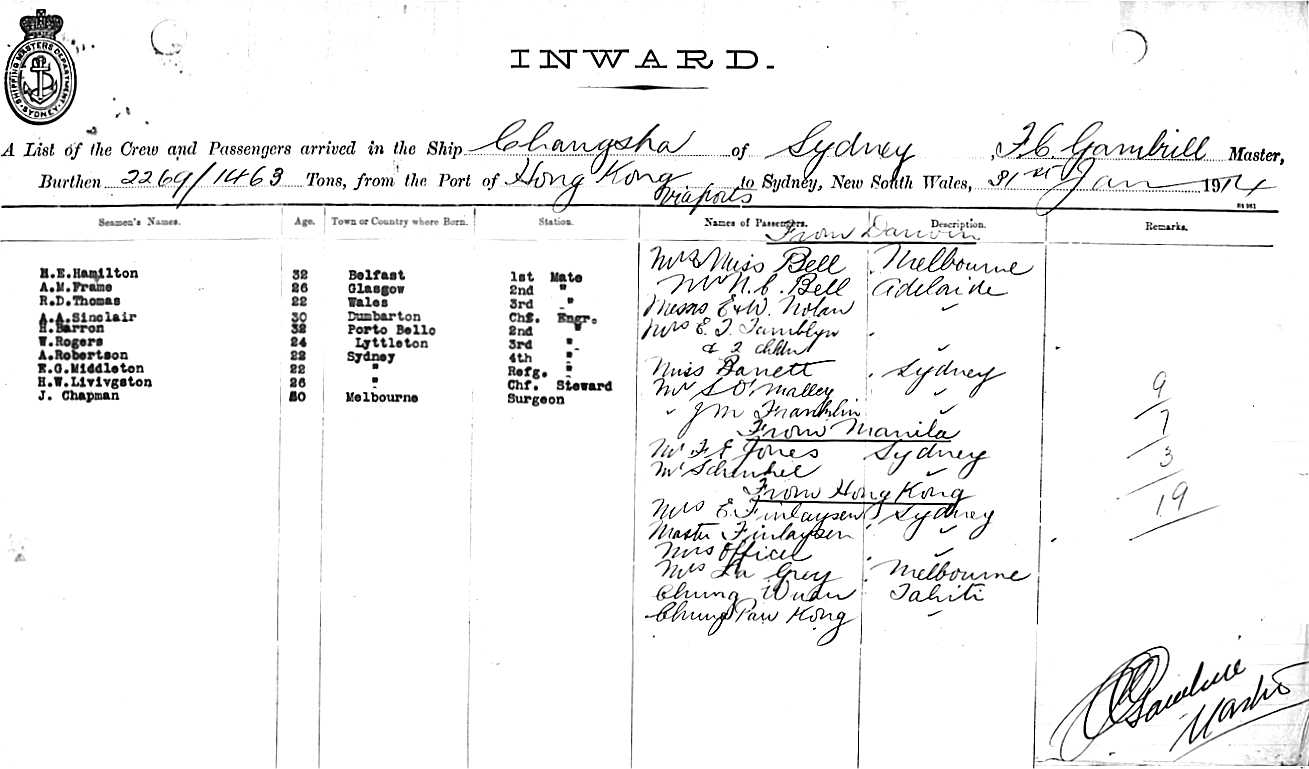 SHIPPING MASTERS DEPARTMENT
SYDNEY
INWARD.
A List of the Crew and Passengers arrived in the Ship Changsha of Sydney, F. C. Gambrill Master,
Burthen 2269/1463 Tons, from the Port of Hong Kong to Sydney, New South Wales, 31st Jan 1914
Via ports
Seamen's Names. Age. Town or Country where Born. Station. Names of Passengers. Description. Remarks.
From Darwin
Mrs & Miss Bell Melbourne
H.E.Hamilton 32 Belfast 1st Mate
A.M.Frame 26 Glasgow 2nd " Mr N. C. Bell Adelaide
R.D.Thomas 22 Wales 3rd " Messrs E & W. Nolan "
A.A.Sinclair 30 Dumbarton Chf. Engr.
H.Barron 32 Porto Bello 2nd " Mrs E. T. Tamblyn
W.Rogers 24 Lyttleton 3rd " & 2 chldn "
A.Robertson 22 Sydney 4th "
E.G.Middleton 22 " Refg. " Miss Barrett Sydney
H.W.Livivgston 26 " Chf. Steward Mr S O'Malley " 9
J. Chapman 50 Melbourne Surgeon
" J M Franklin " 7
From Manila
Mr F E Jones Sydney 3
Mr Schenkel "
From Hong Kong 19
Mrs E. Finlaysen Sydney
Master Finlaysen "
Mrs Officer "
Mrs Grey Melbourne
Chung Tahiti
Chung Paw Kong "
Master